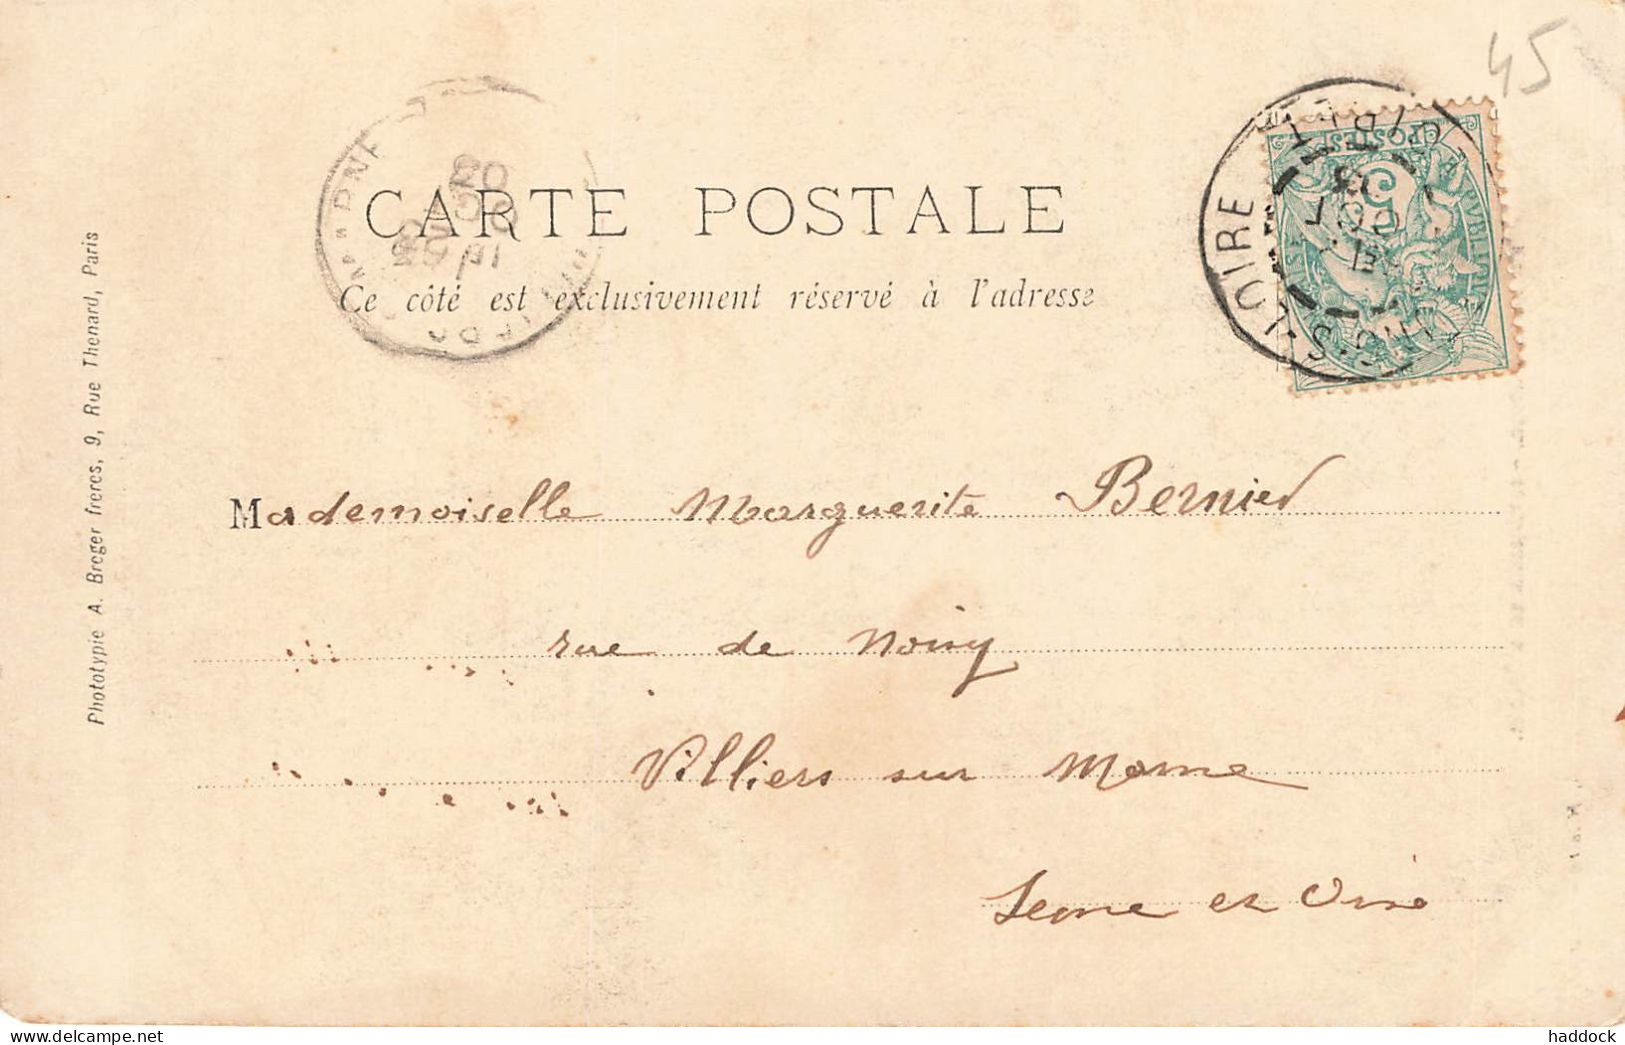 45
CARTE POSTALE
Ce côté est exclusivement réservé à l'adresse
POSTES
5
S-LOIRE
LOIRET
03
Mademoiselle Marguerite Bernier
rue de Noisy
Villiers sur Marne
Seine et Oise
Phototypie A. Breger freres, 9, Rue Thenard, Paris
haddock